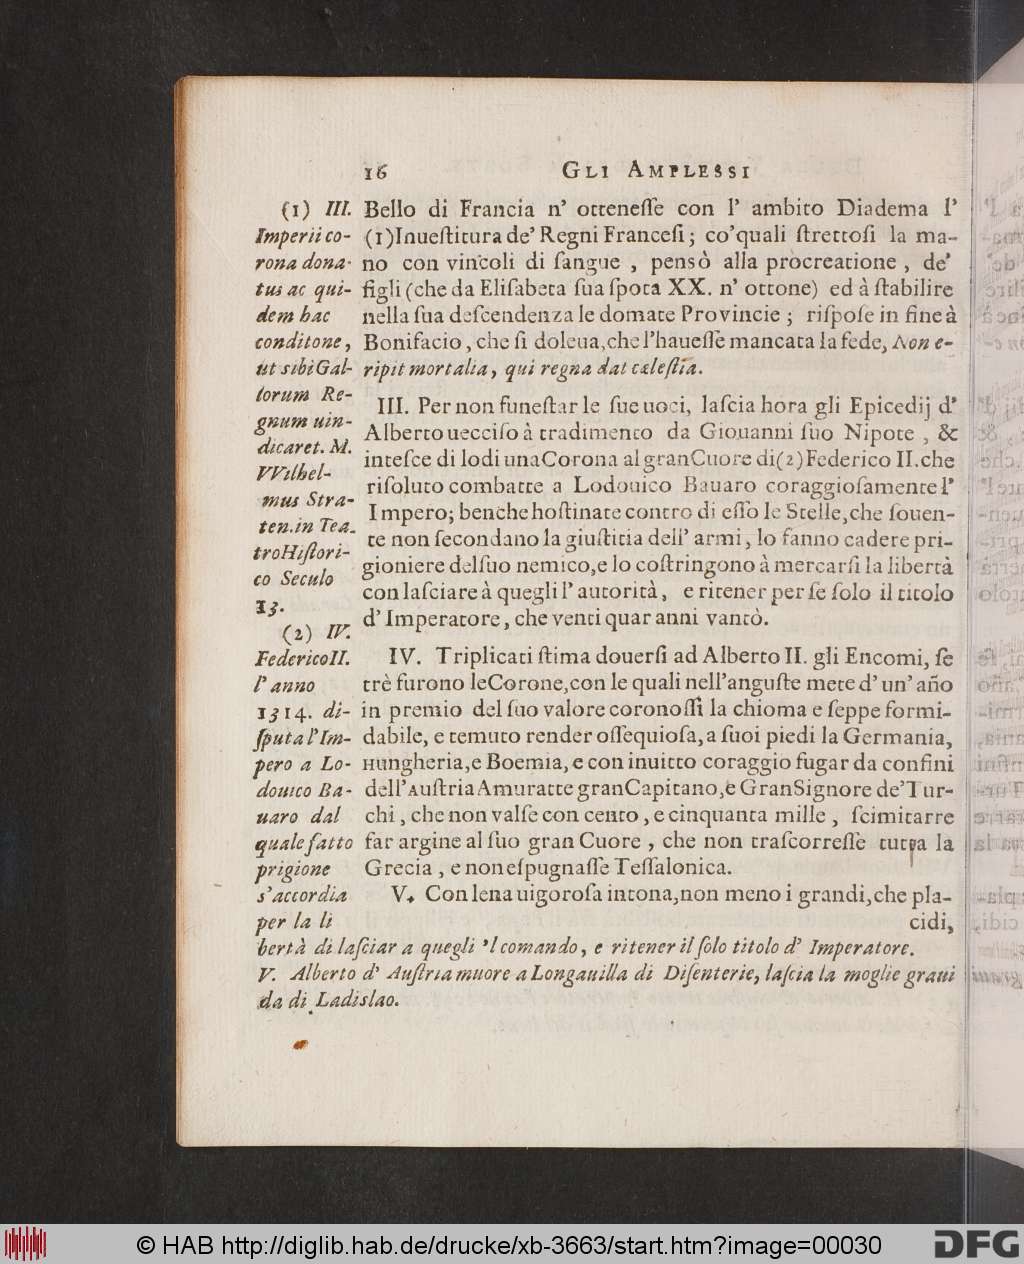 16 GLI AMPLESSI
Bello di Francia n' otteneſſe con l' ambito Diadema l'
(1)Inueſtitura de' Regni Franceſi; co'quali ſtrettoſi la ma-
no con vincoli di ſangue , pensò alla procreatione , de'
figli (che da Eliſabeta ſua ſpoſa XX. n' ottone) ed à ſtabilire
nella ſua deſcendenza le domate Provincie ; riſpoſe in fine à
Bonifacio, che ſi doleua,che l'haueſſe mancata la fede, Non e-
ripit mortalia, qui regna dat cæleſtia.
III. Per non funeſtar le ſue uoci, laſcia hora gli Epicedij d'
Alberto ucciſo à tradimento da Giouanni ſuo Nipote , &
inteſce di lodi una Corona al gran Cuore di(2)Federico II.che
riſoluto combatte a Lodouico Bauaro coraggioſamente l'
Impero; benche hoſtinate contro di eſſo le Stelle,che ſouen-
te non ſecondano la giuſtitia dell' armi, lo fanno cadere pri-
gioniere del ſuo nemico,e lo coſtringono à mercarſi la libertà
con laſciare à quegli l' autorità, e ritener per ſe ſolo il titolo
d' Imperatore, che venti quar anni vantò.
IV. Triplicati ſtima douerſi ad Alberto II. gli Encomi, ſe
trè furono le Corone,con le quali nell'anguſte mete d' un' año
in premio del ſuo valore coronoſſi la chioma e ſeppe formi-
dabile, e temuto render oſſequioſa, a ſuoi piedi la Germania,
Hungheria,e Boemia, e con inuitto coraggio fugar da confini
dell'Auſtria Amuratte gran Capitano,e Gran Signore de'Tur-
chi , che non valſe con cento , e cinquanta mille , ſcimitarre
far argine al ſuo gran Cuore , che non traſcorreſſe tutta la
Grecia , e non eſpugnaſſe Teſſalonica.
V. Con lena uigoroſa intona,non meno i grandi,che pla-
cidi,
(1) III.
Imperii co-
rona dona-
tus ac qui-
dem hac
conditone,
ut sibi Gal-
lorum Re-
gnum uin-
dicaret. M.
VVilhel-
mus Stra-
ten.in Tea-
tro Hiſtori-
co Seculo
13.
(2) IV.
Federico II.
l' anno
1314. di-
ſputa l'Im-
pero a Lo-
douico Ba-
uaro dal
quale fatto
prigione
s'accordia
per la li
bertà di laſciar a quegli 'l comando, e ritener il ſolo titolo d' Imperatore.
V. Alberto d' Auſtria muore a Longauilla di Diſenterie, laſcia la moglie graui
da di Ladislao.
© HAB http://diglib.hab.de/drucke/xb-3663/start.htm?image=00030
DFG